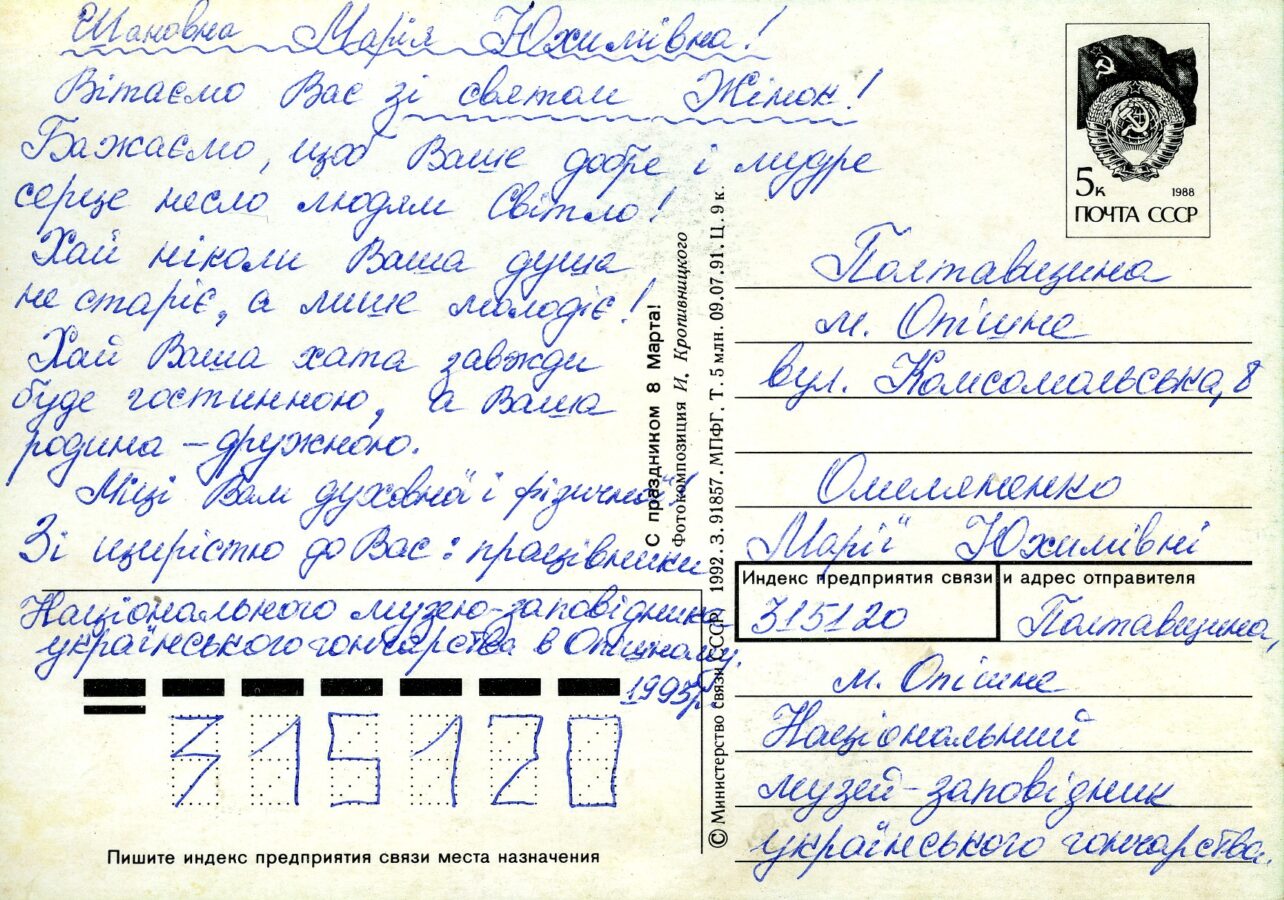 Шановна Марія Юхимівна!
Вітаємо Вас зі святом Жінок!
Бажаємо, щоб Ваше добре і мудре
серце несло людям Світло!
Хай ніколи Ваша душа
не старіє, а лише молодіє!
Хай Ваша хата завжди
буде гостинною, а Ваша
родина – дружною.
Міці Вам духовної і фізичної!
Зі щирістю до Вас: працівники
Національного музею-заповідника
українського гончарства в Опішному.
1995р.
Пишите индекс предприятия связи места назначения
315120
С праздником 8 Марта!
Фотокомпозиция И. Кропивницкого
© Министерство связи СССР. 1992. З. 91857. МПФГ. Т. 5 млн. 09.07.91. Ц. 9 к.
5к
1988
ПОЧТА СССР
Полтавщина
м. Опішне
вул. Комсомольська, 8
Омеляненко
Марії Юхимівні
Индекс предприятия связи и адрес отправителя
315120 Полтавщина,
м. Опішне
Національний
музей-заповідник
українського гончарства.